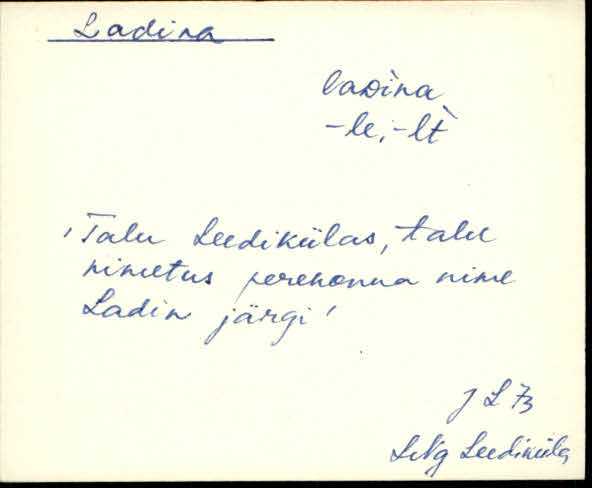 Ladina
laᴅ̀ina
-le, -lt̀
'Talu Leedikülas, talu
nimetus perekonna nime
Ladin järgi'
J L 73
LNg Leediküla